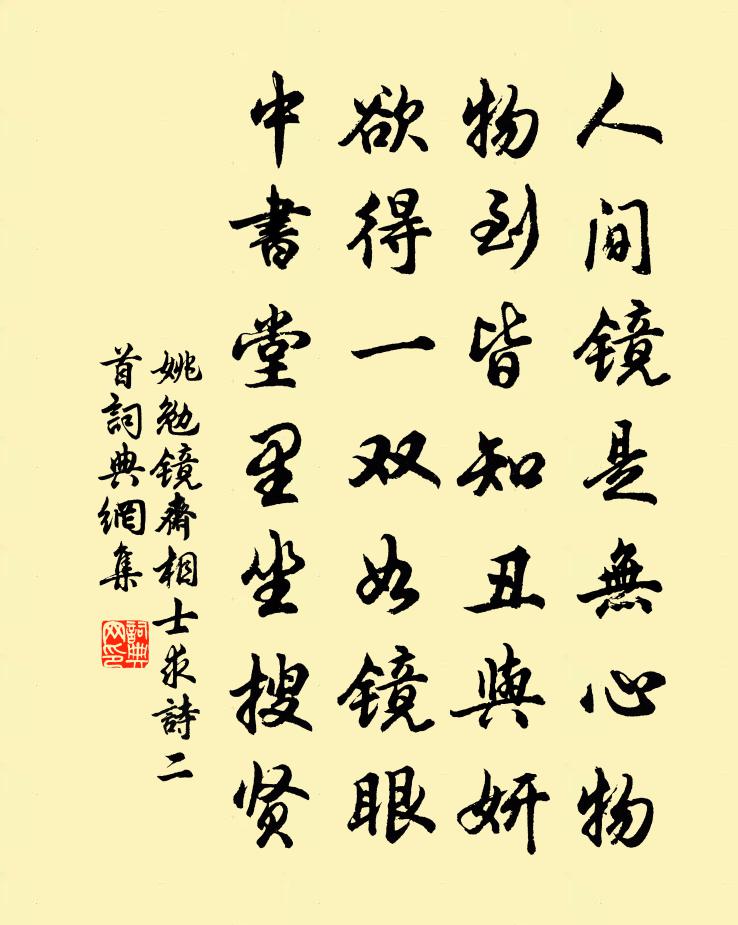 人间镜是無心物
物到皆知丑與妍
欲得一双如镜眼
中書堂里坐搜贤
姚勉镜齋相士求詩二
首詞典網集
詞典
网印